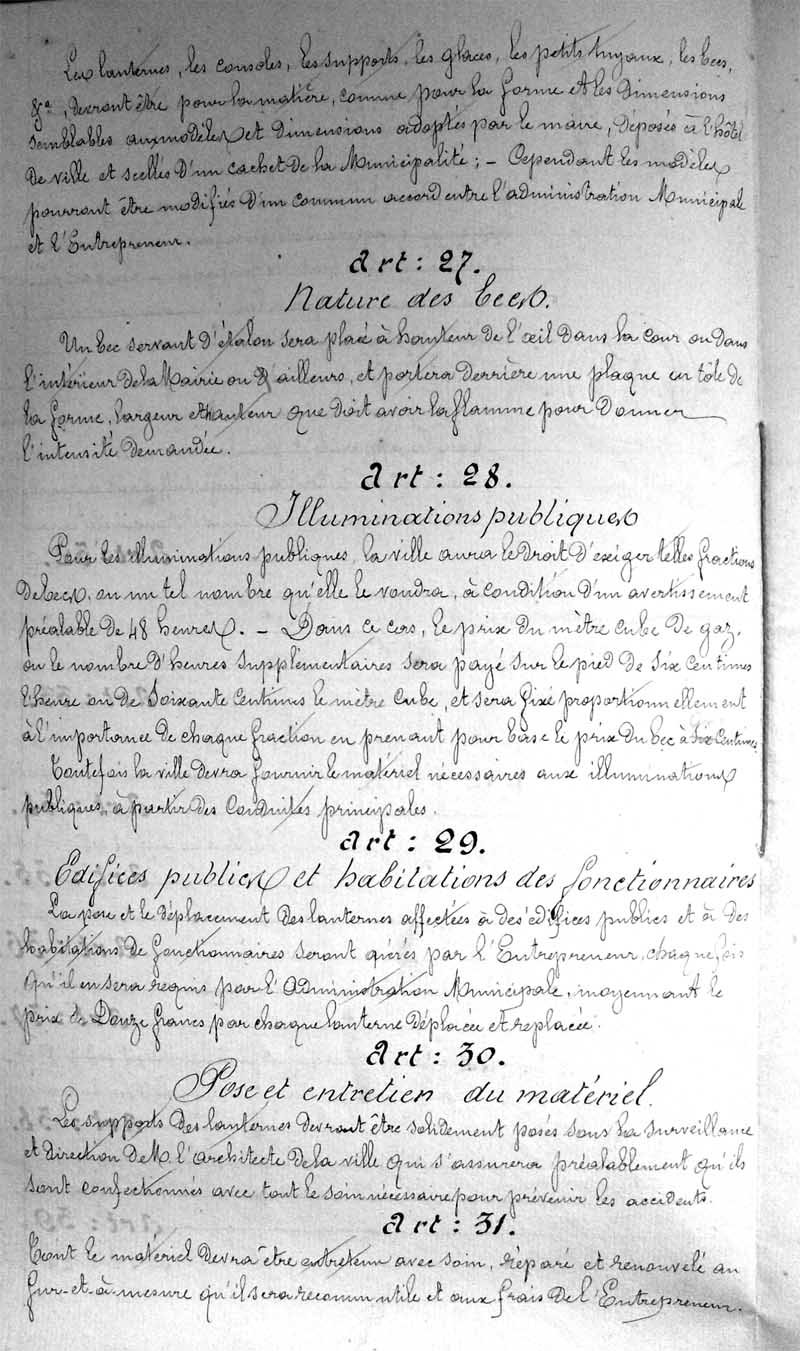 Les lanternes, les consoles, les supports, les glaces, les petits tuyaux, les becs,
&a, devront être pour la matière, comme pour la forme et les dimensions
semblables aux modèles et dimensions adoptés par le maire, déposés à l'hôtel
de ville et scellés d'un cachet de la Municipalité ; — Cependant les modèles
pourront être modifiés d'un commun accord entre l'administration Municipale
et l'Entrepreneur.
Art : 27.
Nature des becs.
Un bec servant d'étalon sera placé à hauteur de l'œil dans la cour ou dans
l'intérieur de la Mairie ou d'ailleurs, et portera derrière une plaque en tôle de
la forme, largeur et hauteur que doit avoir la flamme pour donner
l'intensité demandée.
Art : 28.
Illuminations publiques
Pour les illuminations publiques, la ville aura le droit d'exiger telles fractions
de becs, en un tel nombre qu'elle le voudra, à condition d'un avertissement
préalable de 48 heures. — Dans ce cas, le prix du mètre cube de gaz,
ou le nombre d'heures supplémentaires sera payé sur le pied de six centimes
l'heure ou de soixante centimes le mètre cube, et sera fixé proportionnellement
à l'importance de chaque fraction en prenant pour base le prix du bec à six centimes.
Toutefois la ville devra fournir le matériel nécessaires aux illuminations
publiques, à partir des conduites principales.
Art : 29.
Edifices publics et habitations des fonctionnaires
La pose et le déplacement des lanternes affectées à des édifices publics et à des
habitations de fonctionnaires seront opérés par l'Entrepreneur, chaque fois
qu'il en sera requis par l'Administration Municipale, moyennant le
prix de Douze francs par chaque lanterne déplacée et replacée.
Art : 30.
Pose et entretien du matériel.
Les supports des lanternes devront être solidement posés sous la surveillance
et direction de M. l'architecte de la ville qui s'assurera préalablement qu'ils
sont confectionnés avec tout le soin nécessaire pour prévenir les accidents.
Art : 31.
Tout le matériel devra être entretenu avec soin, réparé et renouvelé au
fur-et-à-mesure qu'il sera reconnu utile et aux frais de l'Entrepreneur.